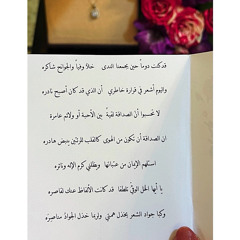 قد كنت دوماً حين يجمعنا الندى خلاً وفياً والجوانح شاكره
واليوم أشعر في قرارة خاطري أن الذي قد كان أصبح نادره
لا تحسبوا أن الصداقة لقية بين الأحبة أو ولائم عامرة
إن الصداقة أن تكون من الهوى كالقلب للرئتين ينبض هادره
أستلهم الإيمان من عتباتها ويظلني كرم الإله ونائره
يا أيها الخل الوفي تلطفا قد كانت الألفاظ عنك لقاصره
وكبا جواد الشعر يخذل همتي ولربما خذل الجواد مناصره